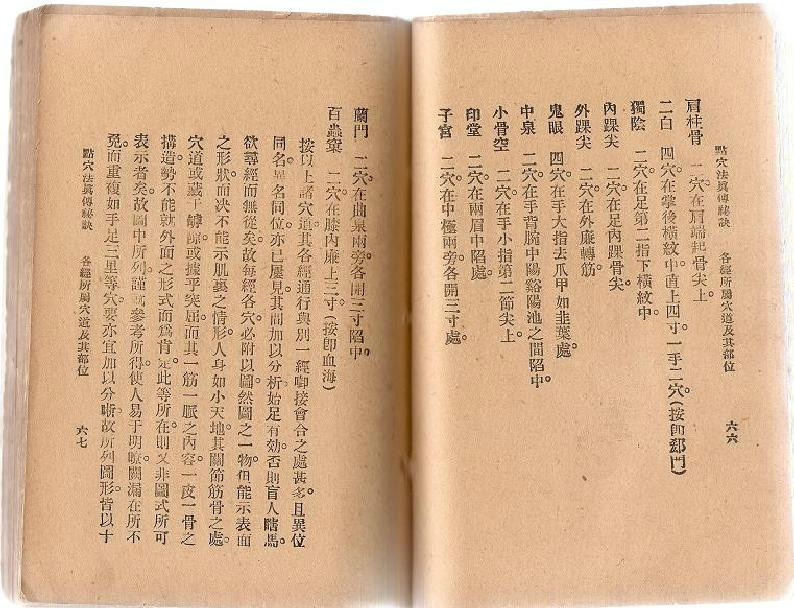 點穴法眞傳秘訣　各經所屬穴道及其部位　六六
肩柱骨　二穴。在肩端起骨尖上。
二白　四穴。在掌後橫紋中。直上四寸。一手二穴。(按卽郄門)
獨陰　二穴。在足第二指下橫紋中。
內踝尖　二穴。在足內踝骨尖。
外踝尖　二穴。在外廉轉筋。
鬼眼　四穴。在手大指去爪甲如韭葉處。
中泉　二穴。在手背腕中陽谿陽池之間陷中。
小骨空　二穴。在手小指第二節尖上。
印堂　二穴。在兩眉中陷處。
子宮　二穴。在中極兩旁各開三寸處。
蘭門　二穴。在曲泉兩旁。各開三寸陷中。
百蟲窠　二穴。在膝內廉上三寸。(按卽血海)
按以上諸穴道。其各經通行與別一經啣接會合之處甚多。且異位
同名。異名同位。亦已屢見。其間加以分析。始足有効。否則盲人瞎馬。
欲尋經而無從矣。故每經各穴。必附以圖。然圖之一物。但能示表面
之形狀。而決不能示肌裏之情形。人身如小天地。其關節筋骨之處。
穴道或藏于罅隙。或據乎突屈。而其一筋一脈之內容。一皮一骨之
構造。勢不能就外面之形式而爲肯定。此等所在。則又非圖式所可
表示者矣。故圖中所列。謹就參考所得。使人易于明瞭。闕漏在所不
免。而重複如手足三里等穴。要亦宜加以分晰。故所列圖形。皆以十
點穴法眞傳秘訣　各經所屬穴道及其部位　六七